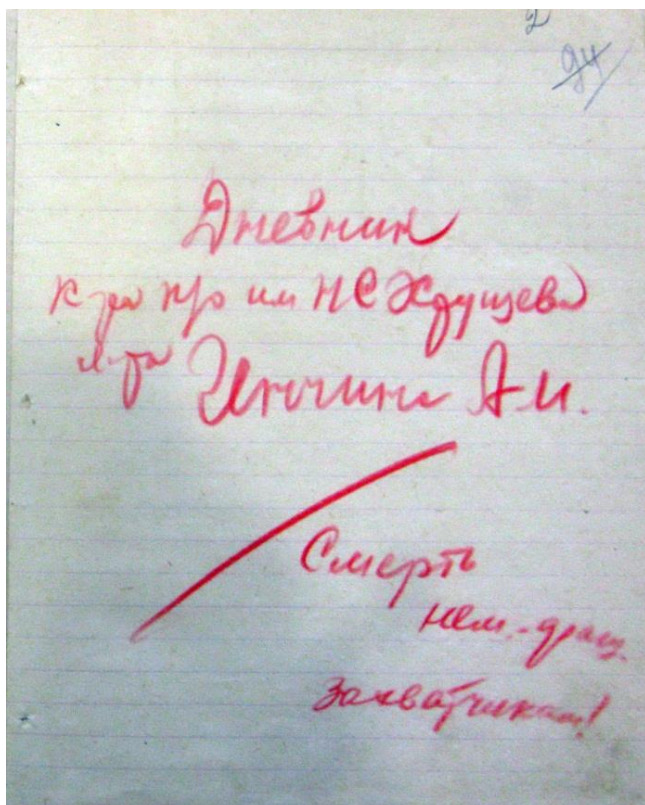 2
94
Дневник
к-ра п/о им Н С Хрущева
А. И.
Смерть
нем.-фаш.
захватчикам!